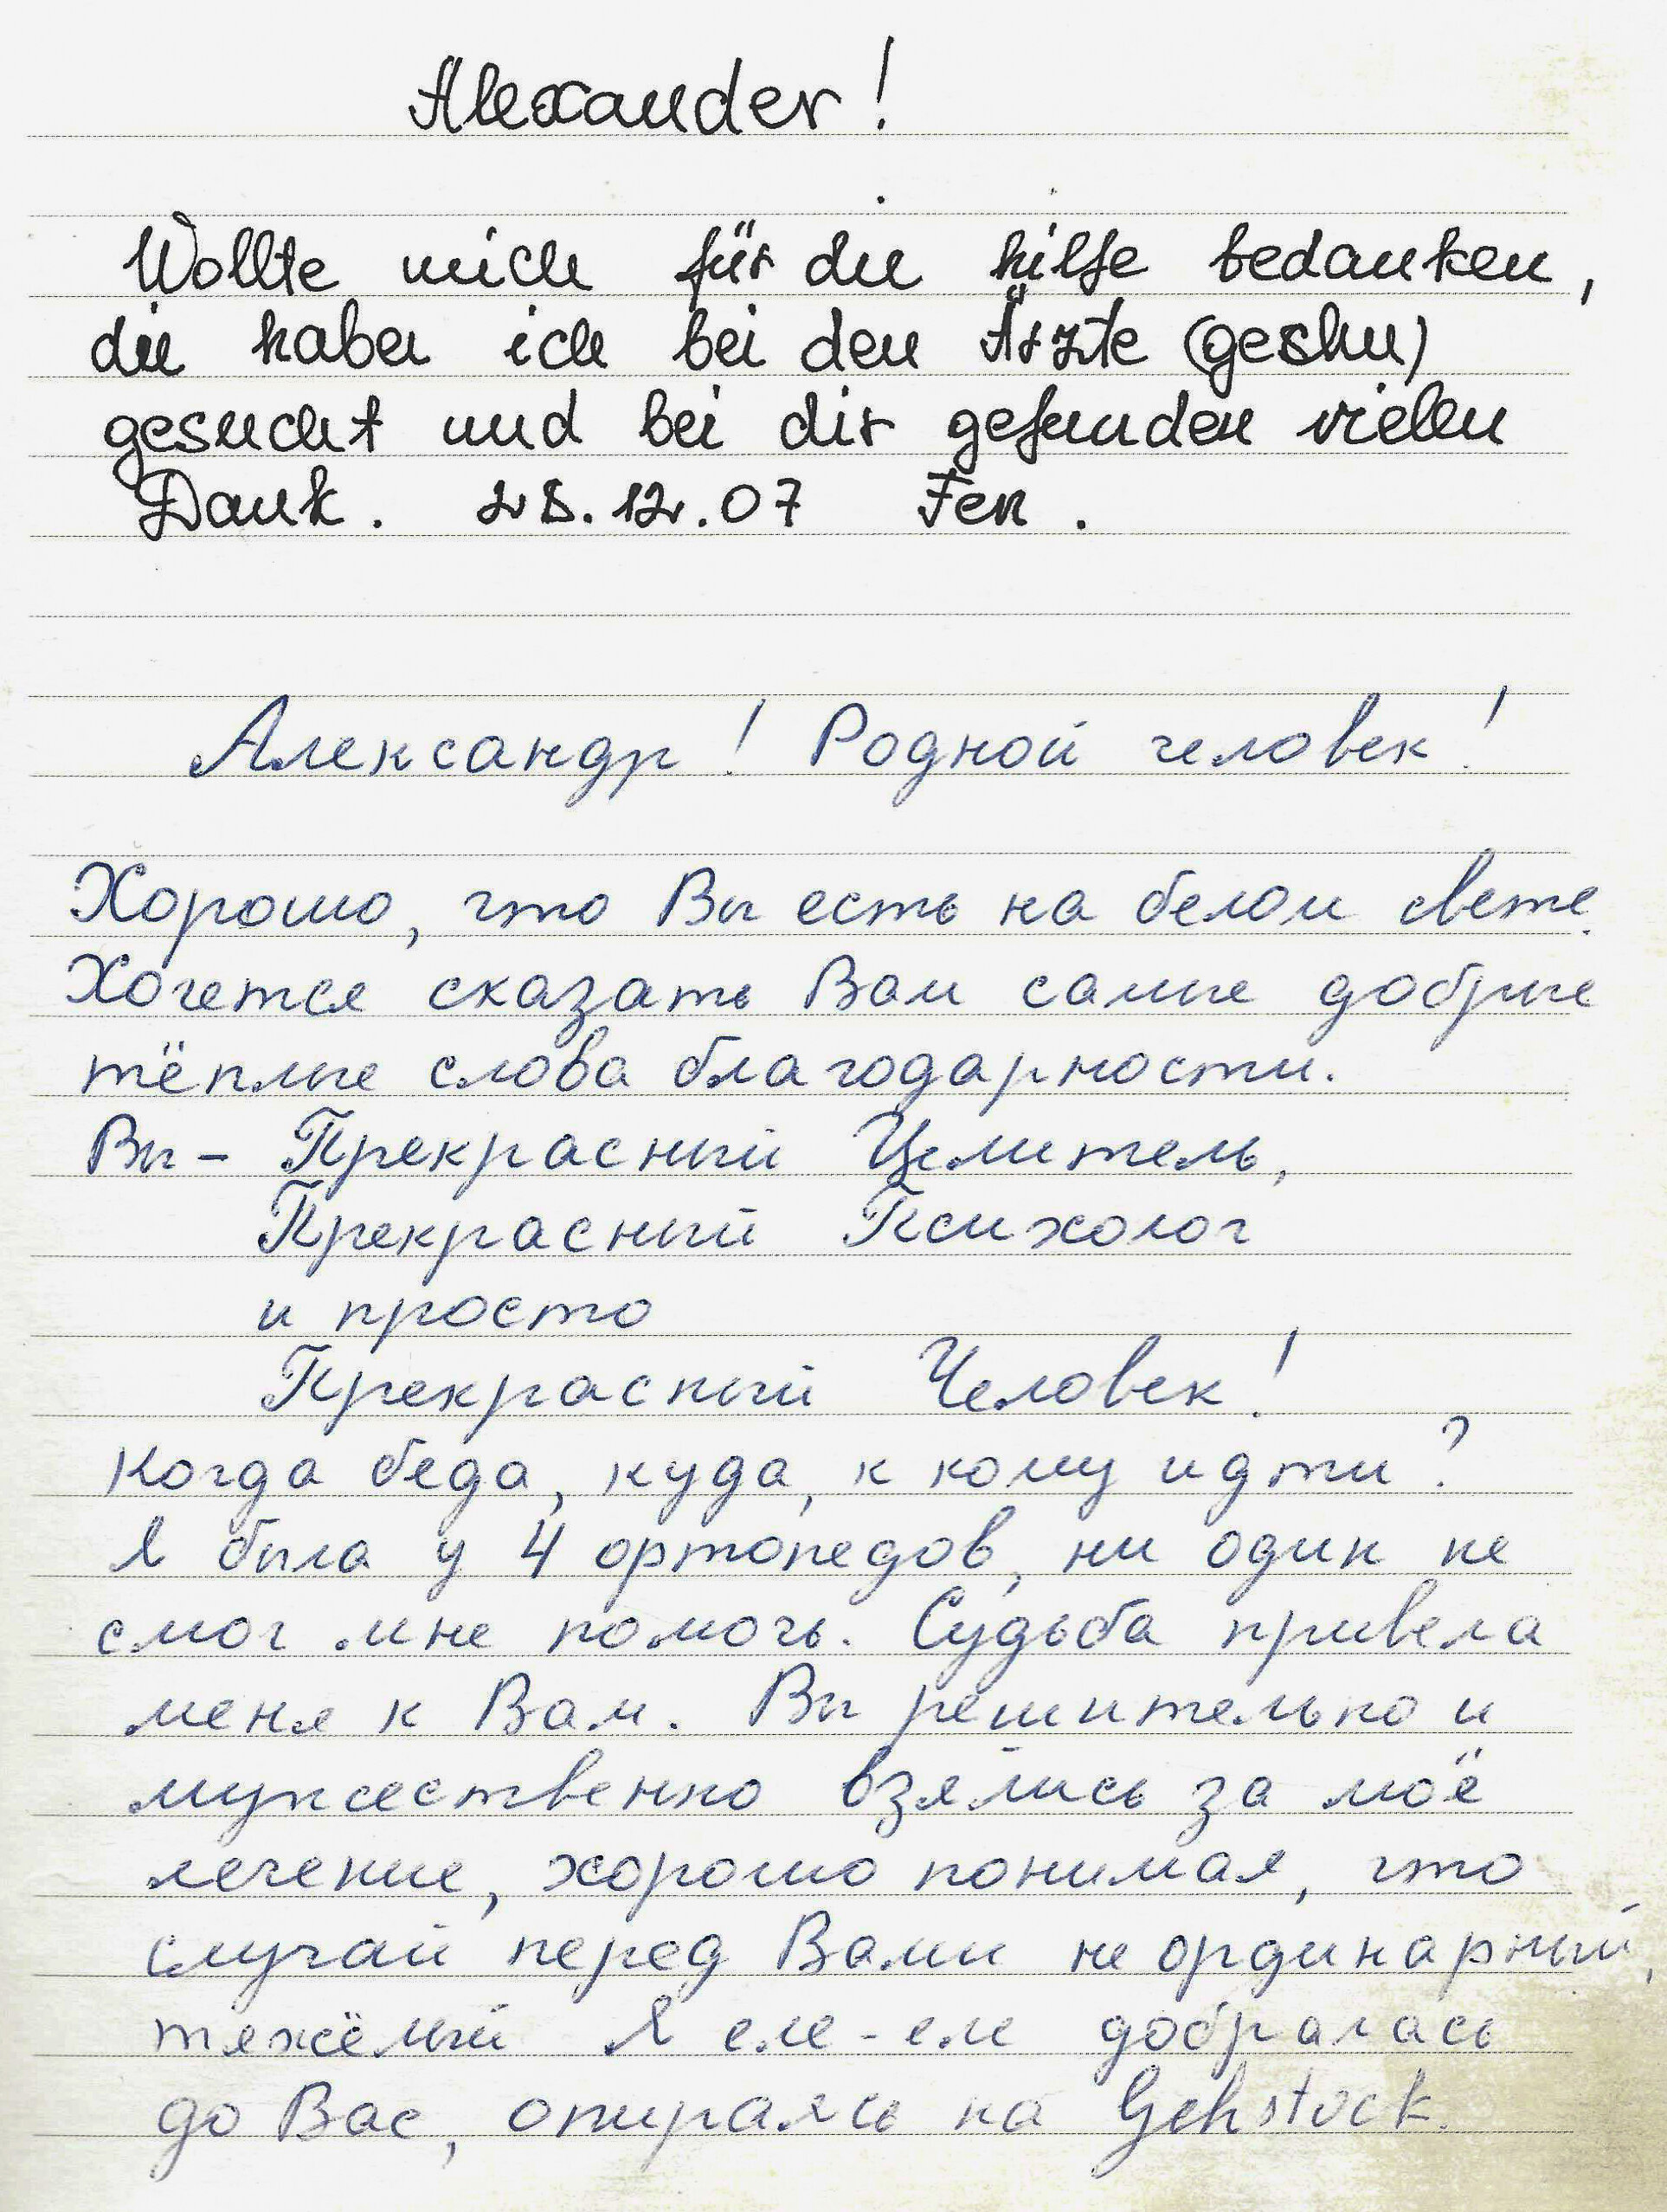 Alexander!
Wollte mich für die hilfe bedanken,
die haben ich bei den Ärzte
gesucht und bei dir gefunden vielen
Dank. 28.12.07
Александр! Родной человек!
Хорошо, что Вы есть на белом свете.
Хочется сказать Вам самые добрые
тёплые слова благодарности.
Вы – Прекрасный Целитель,
Прекрасный Психолог
и просто
Прекрасный Человек!
Когда беда, куда, к кому идти?
Я была у 4 ортопедов, ни один не
смог мне помочь. Судьба привела
меня к Вам. Вы решительно и
мужественно взялись за моё
лечение, хорошо понимая, что
случай перед Вами не ординарный,
тяжёлый Я еле-еле добралась
до Вас, опираясь на Gehstock.